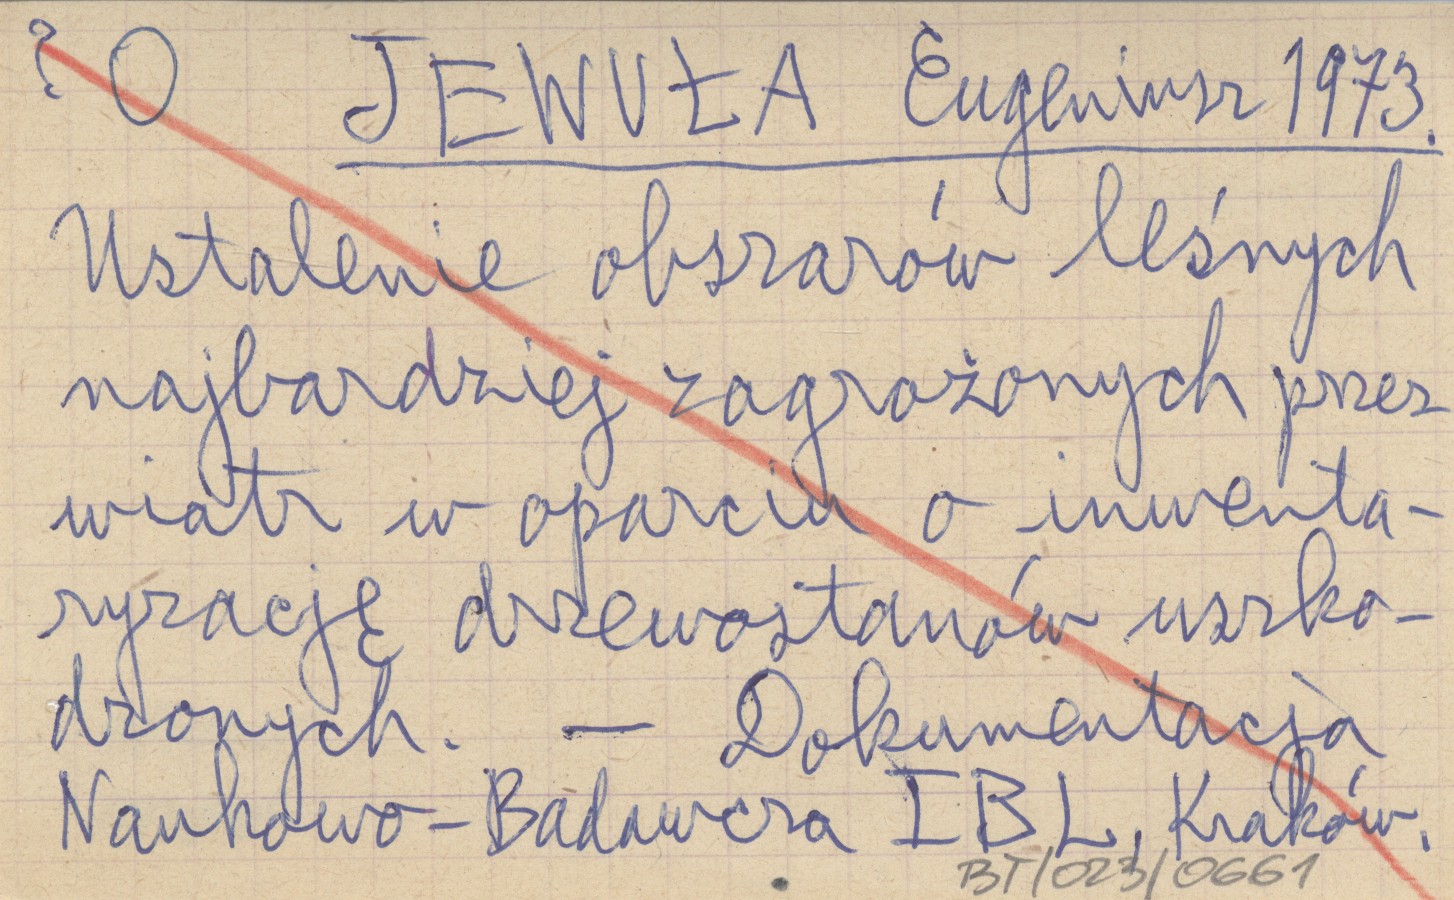 ? O JEWUŁA Eugeniusz 1973.
Ustalenie obszarów leśnych
najbardziej zagrożonych przez
wiatr w oparciu o inwenta-
ryzację drzewostanów uszko-
dzonych. — Dokumentacja
Naukowo-Badawcza IBL, Kraków.
BT/023/0661